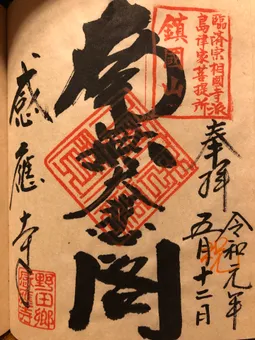 臨済宗相國寺派
島津家菩提所
鎮國山
奉拝
令和元年
五月十二日
祝
南無大悲閣
感應寺
野田郷
感應寺